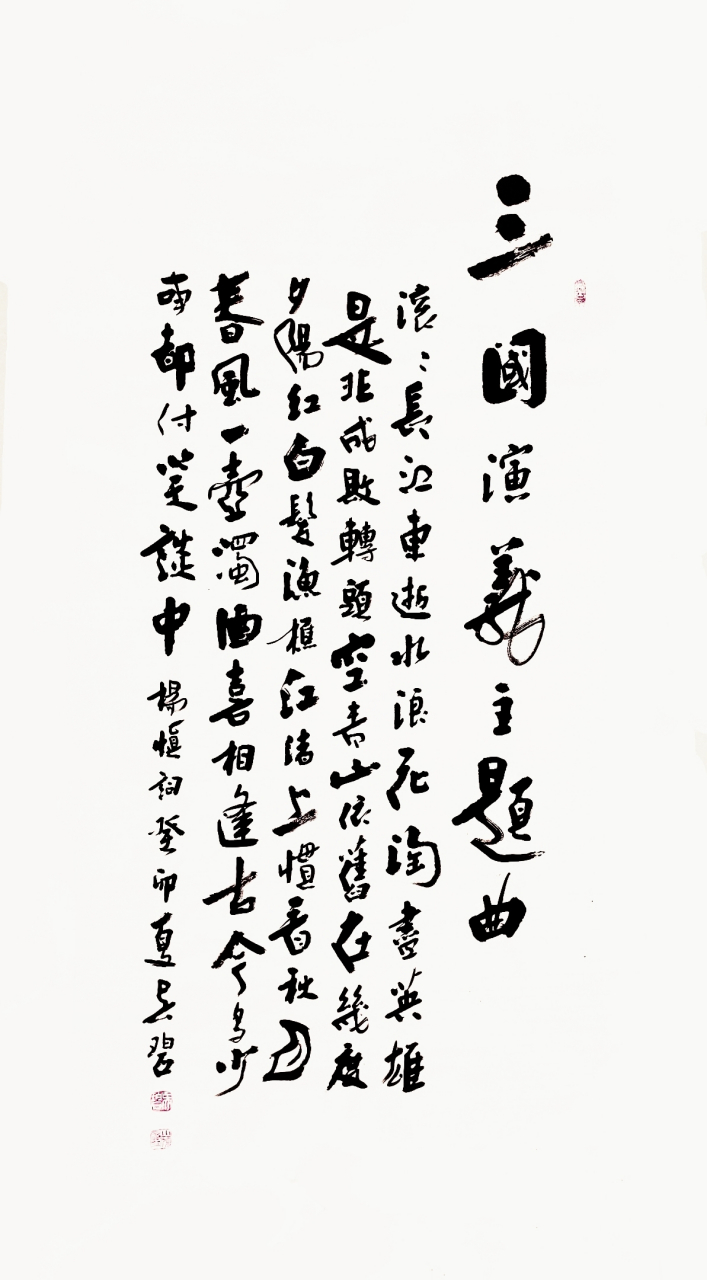 三國演義主題曲
滚〻長江東逝水浪花淘盡英雄
是非成敗轉頭空青山依舊在幾度
夕陽紅白髮漁樵江渚上慣看秋月
春風一壺濁酒喜相逢古今多少
事都付笑談中 楊慎詞癸卯夏吴碧